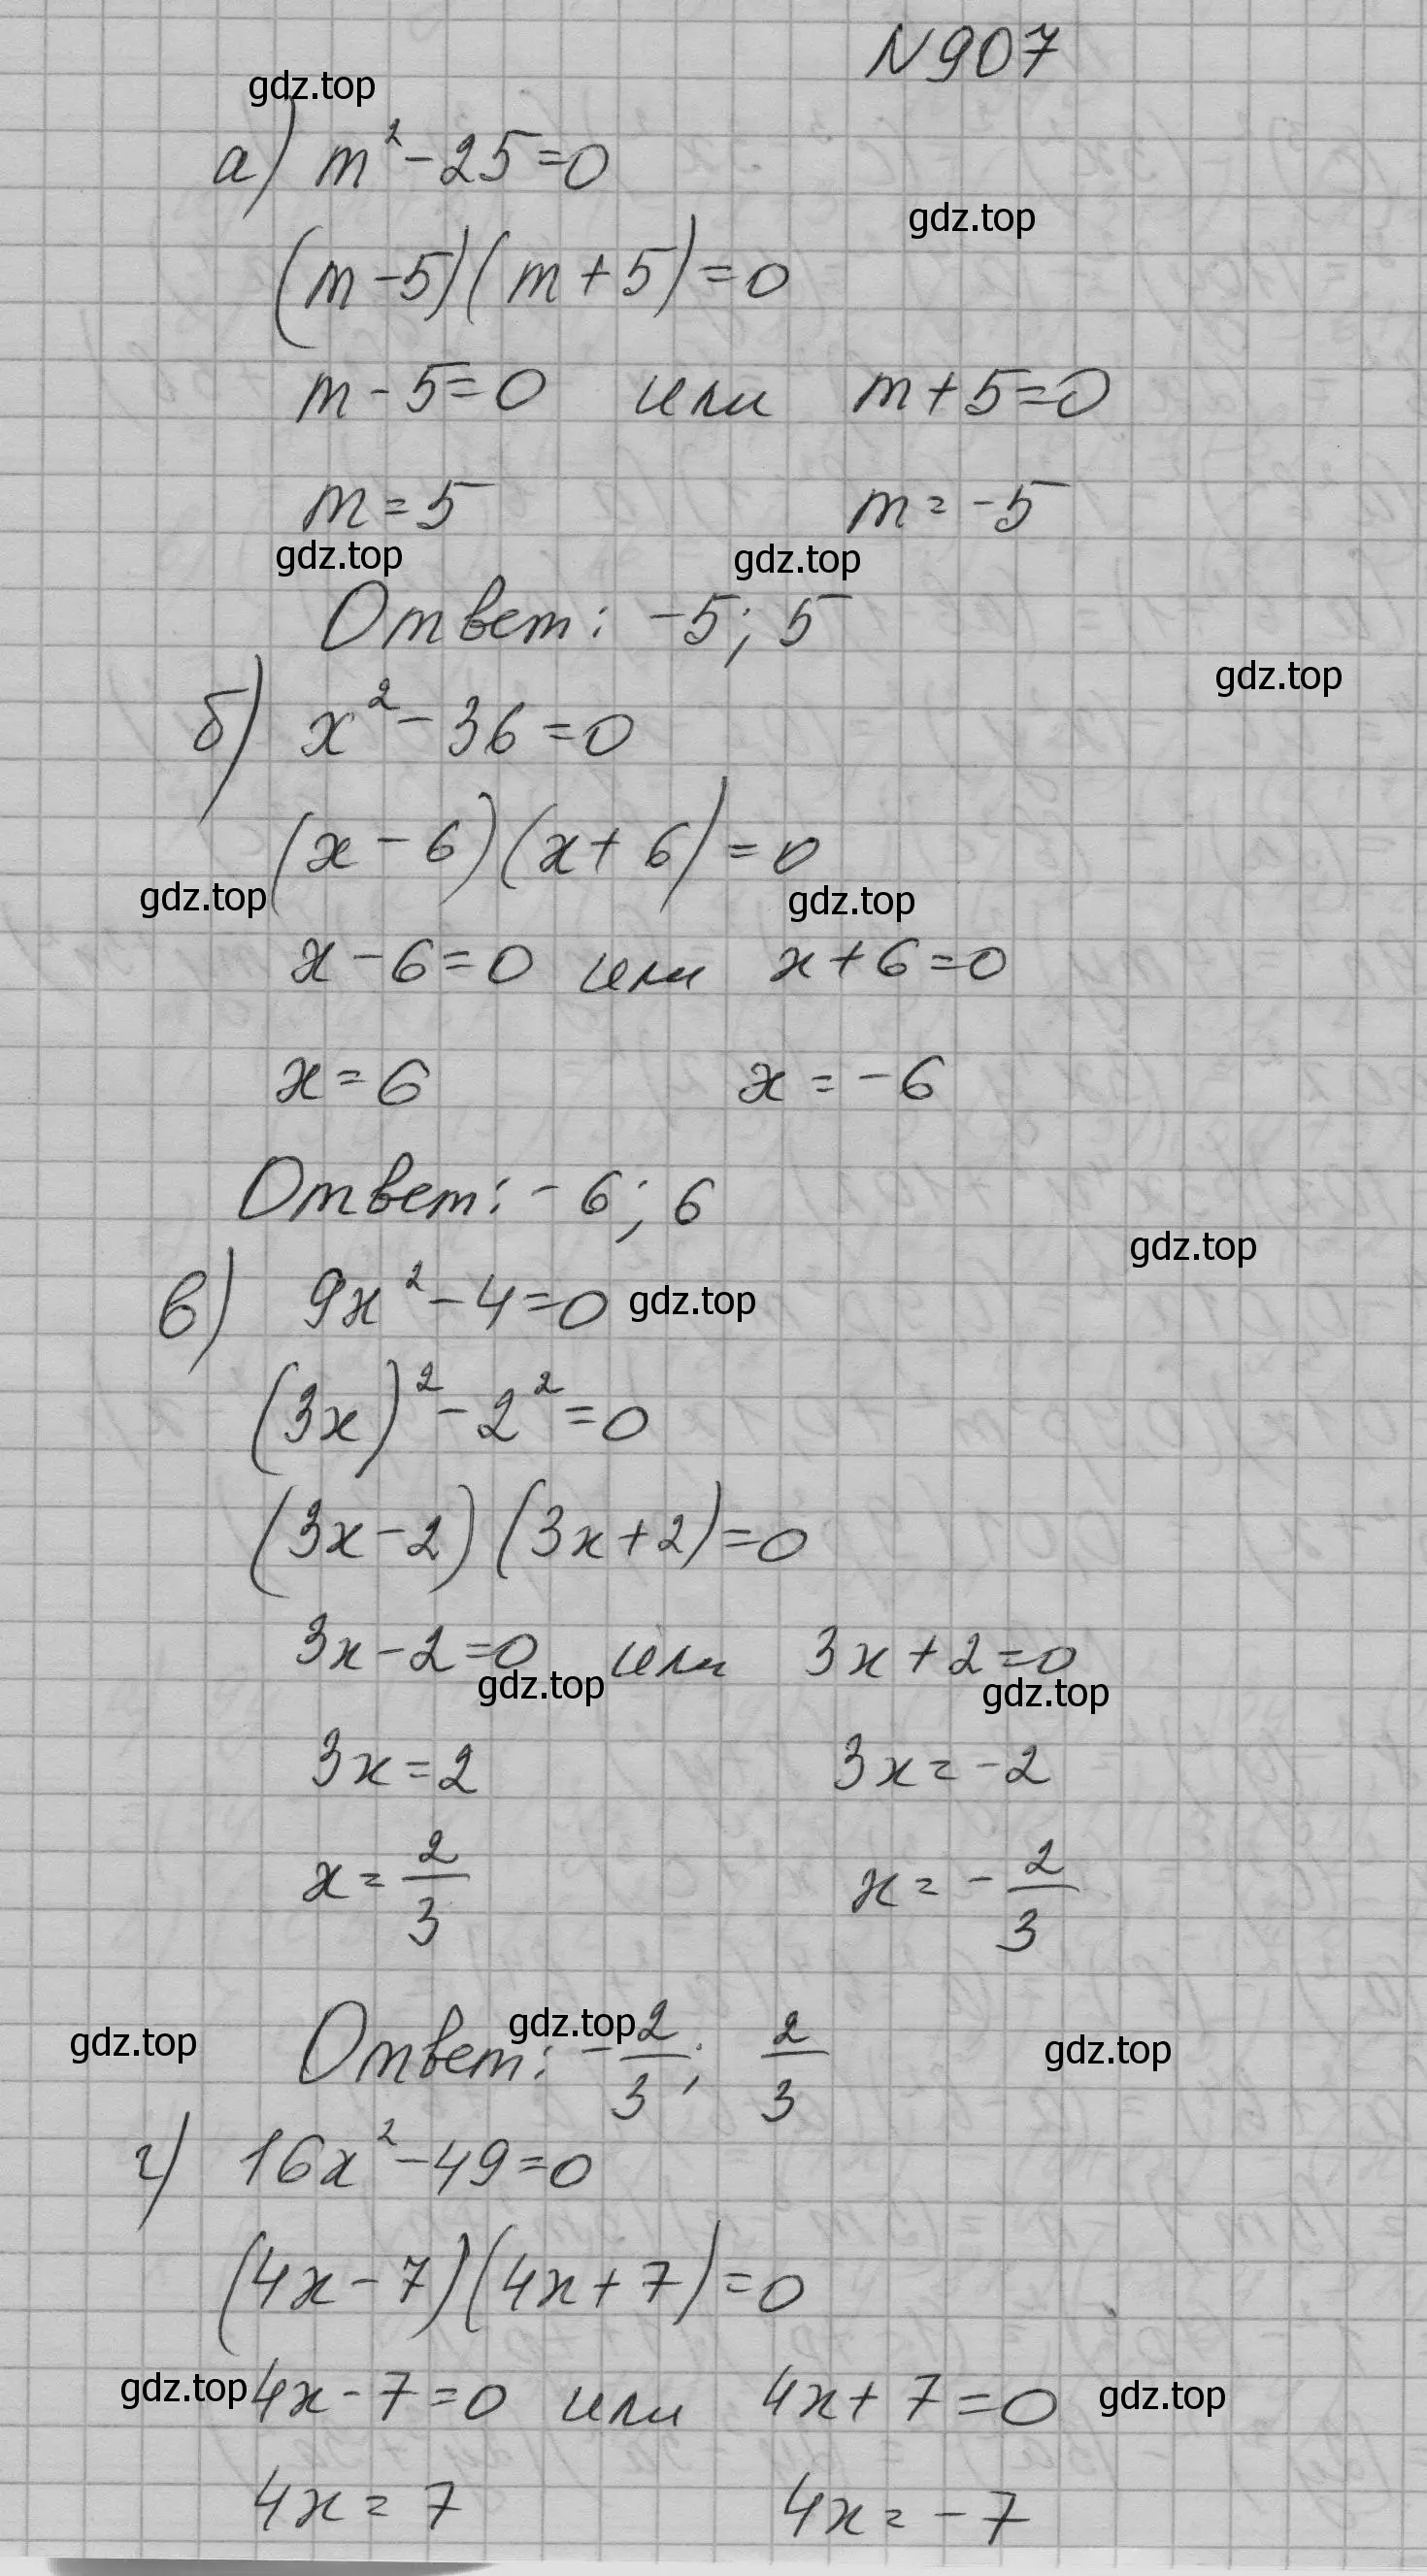 N907
gdz.top
а) m²-25=0
gdz.top
(m-5)(m+5)=0
m-5=0 или m+5=0
m=5 m=-5
gdz.top gdz.top
Ответ: -5; 5
gdz.top
б) x²-36=0
(x-6)(x+6)=0
gdz.top gdz.top
x-6=0 или x+6=0
x=6 x=-6
Ответ: -6; 6
gdz.top
в) 9x²-4=0 gdz.top
(3x)²-2²=0
(3x-2)(3x+2)=0
3x-2=0 или 3x+2=0
gdz.top gdz.top
3x=2 3x=-2
x=2/3 x=-2/3
gdz.top gdz.top gdz.top
Ответ: -2/3; 2/3
г) 16x²-49=0
(4x-7)(4x+7)=0
gdz.top 4x-7=0 или 4x+7=0 gdz.top
4x=7 4x=-7